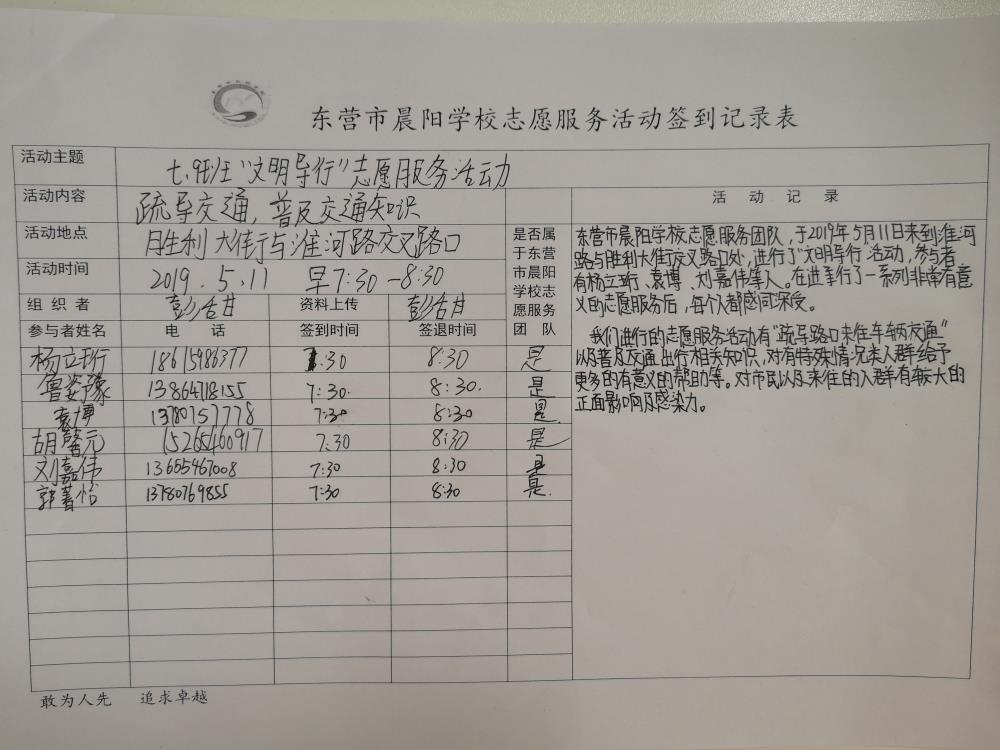 东营市晨阳学校志愿服务活动签到记录表
活动主题 七.9班"文明导行"志愿服务活动
活动内容 疏导交通,普及交通知识
活动地点 胜利大街与淮河路交叉路口
活动时间 2019.5.11 早7:30-8:30
组织者 资料上传
是否属于东营市晨阳学校志愿服务团队
参与者姓名 电话 签到时间 签退时间
杨立珩 18615986377 7:30 8:30 是
鲁姿豫 13864718155 7:30. 8:30. 是
袁博 13780757778 7:30 8:30 是
胡馨元 15265460917 7:30 8:30 是
刘嘉伟 13655467008 7:30 8:30 是
郭著怡 13780769855 7:30 8:30 是.
活动记录
东营市晨阳学校志愿服务团队,于2019年5月11日来到淮河
路与胜利大街交叉路口处,进行了"文明导行"活动,参与者
有杨立珩、袁博、刘嘉伟等人。在进行了一系列非常有意
义的志愿服务后,每个人都感同深受。
我们进行的志愿服务活动有"疏导路口来往车辆交通"
以及普及交通出行相关知识,对有特殊情况来人群给予
更多的有意义的帮助等。对市民以及来往的人群有较大的
正面影响及感染力。
敢为人先 追求卓越